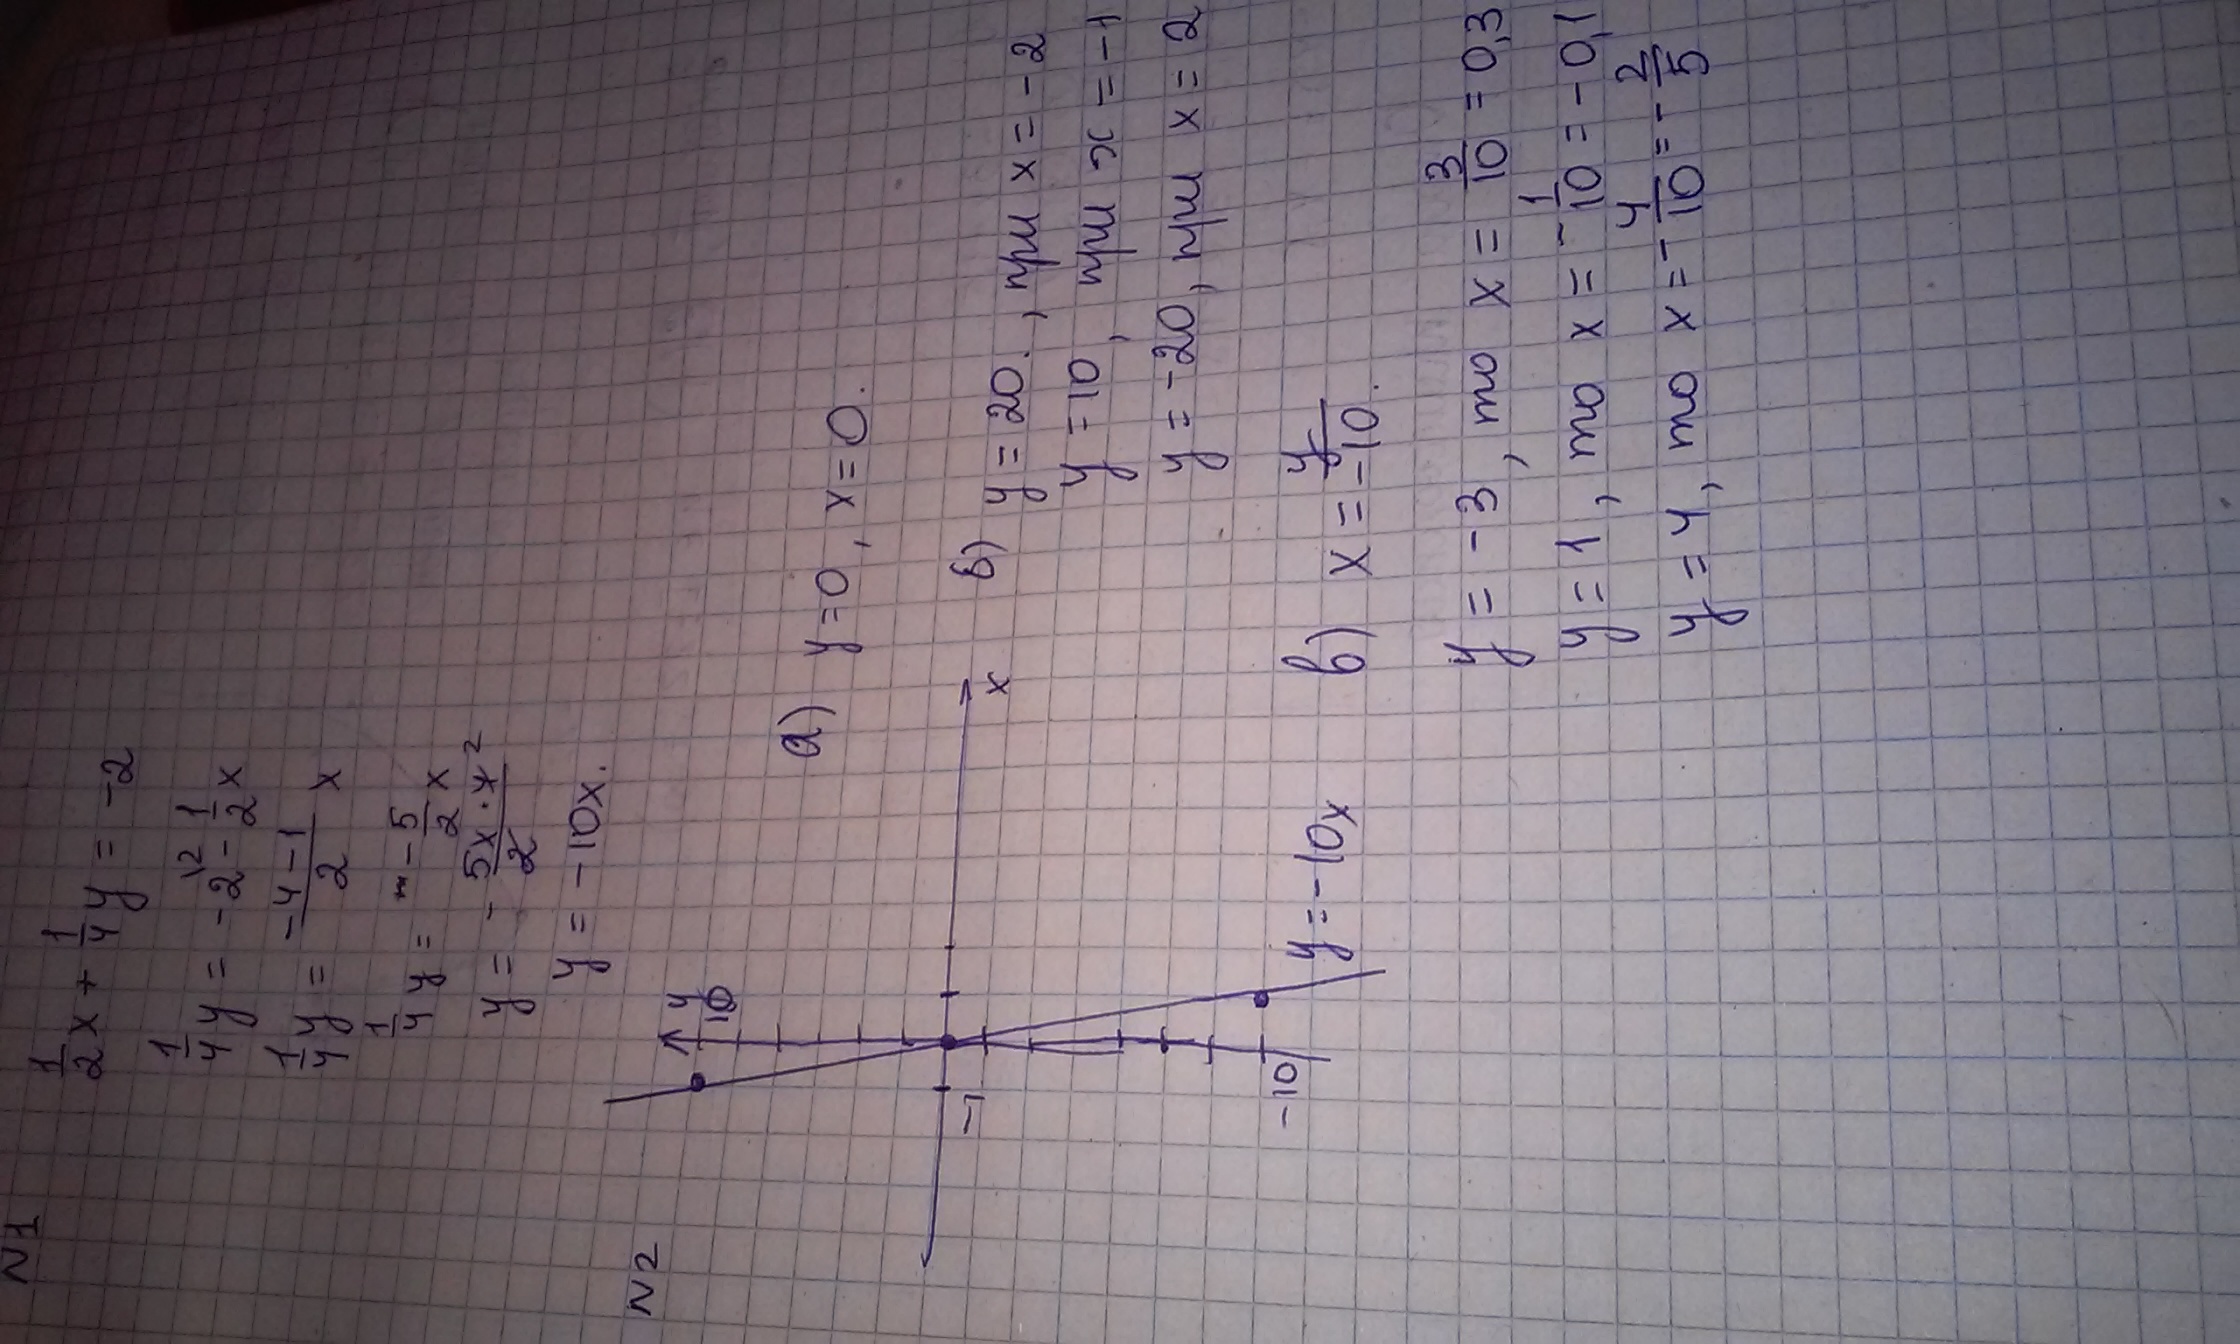 N1
1/2 x + 1/4 y = -2
1/4 y = -2 \2 - 1/2 x
1/4 y = (-4-1)/2 x
1/4 y = - 5/2 x
y = - (5x · 4 2)/2
y = -10x.
N2
y
10
x
-1
-10
y = -10x
а) y = 0, x = 0.
б) y = 20., при x = -2
y = 10, при x = -1
y = -20, при x = 2
в) x = y/-10.
y = -3, то x = 3/10 = 0,3
y = 1, то x = - 1/10 = -0,1
y = 4, то x = - 4/10 = - 2/5